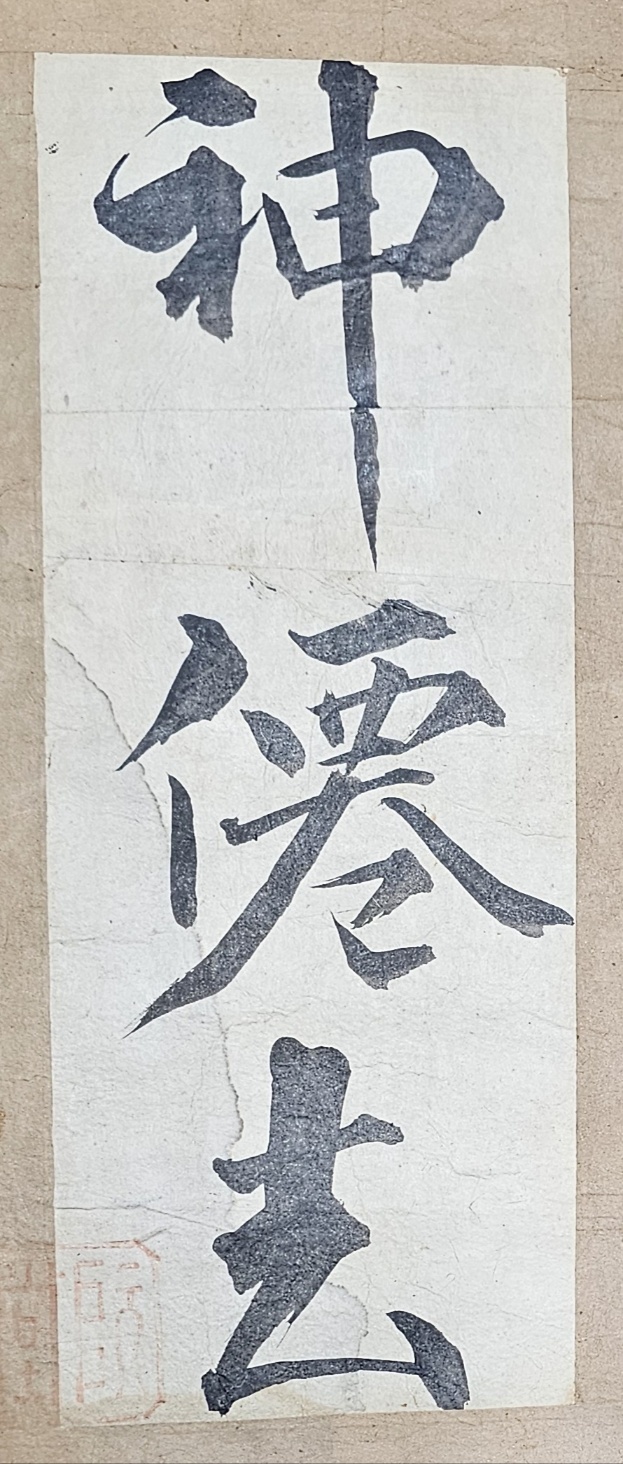 神僊去